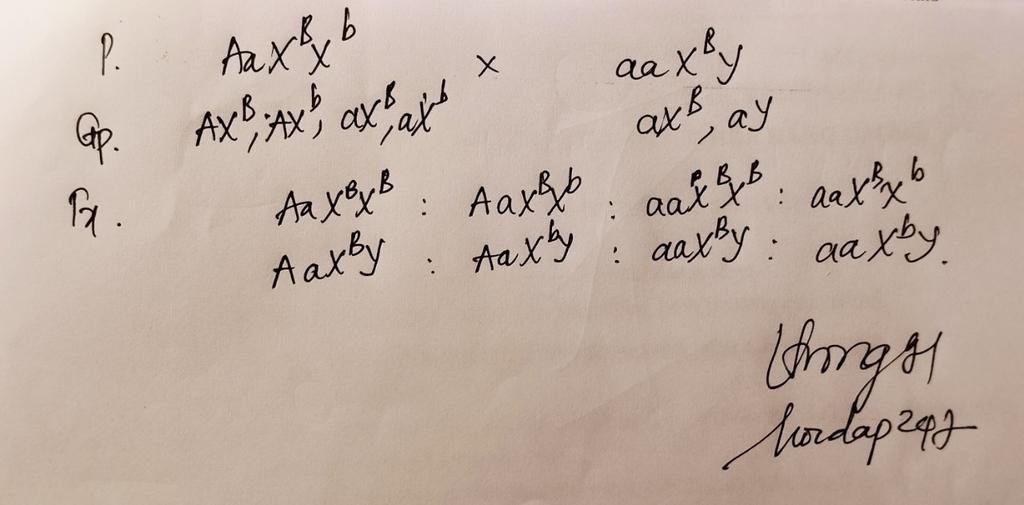 P. AaXᴮXᵇ × aaXᴮY
Gp. AXᴮ, AXᵇ, aXᴮ, aXᵇ aXᴮ, aY
F₁. AaXᴮXᴮ : AaXᴮXᵇ : aaXᴮXᴮ : aaXᴮXᵇ
AaXᴮY : AaXᵇY : aaXᴮY : aaXᵇY.
hoidap247